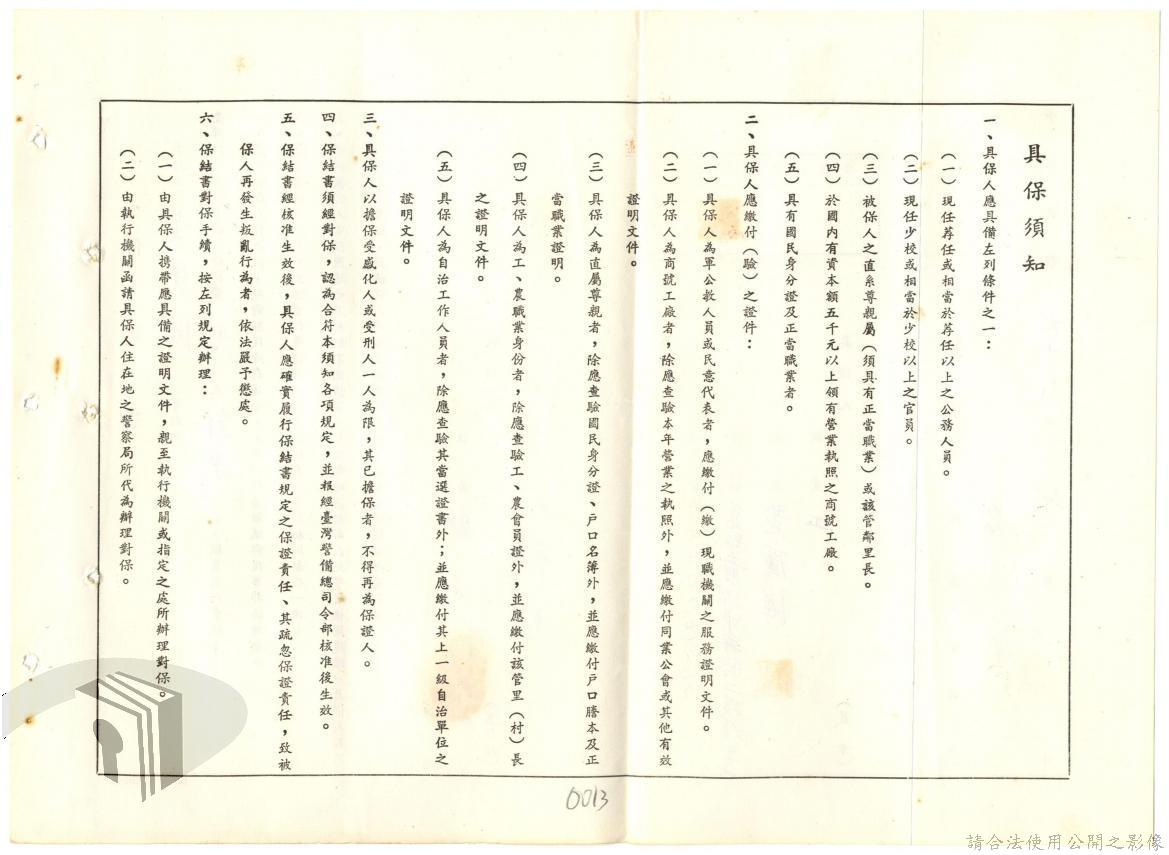 具保須知
一、具保人應具備左列條件之一：
（一）現任荐任或相當於荐任以上之公務人員。
（二）現任少校或相當於少校以上之官員。
（三）被保人之直系尊親屬（須具有正當職業）或該管鄰里長。
（四）於國內有資本額五千元以上領有營業執照之商號工廠。
（五）具有國民身分證及正當職業者。
二、具保人應繳付（驗）之證件：
（一）具保人為軍公教人員或民意代表者，應繳付（繳）現職機關之服務證明文件。
（二）具保人為商號工廠者，除應查驗本年營業之執照外，並應繳付同業公會或其他有效
證明文件。
（三）具保人為直屬尊親者，除應查驗國民身分證、戶口名簿外，並應繳付戶口謄本及正
當職業證明。
（四）具保人為工、農職業身份者，除應查驗工、農會員證外，並應繳付該管里（村）長
之證明文件。
（五）具保人為自治工作人員者，除應查驗其當選證書外；並應繳付其上一級自治單位之
證明文件。
三、具保人以擔保受感化人或受刑人一人為限，其已擔保者，不得再為保證人。
四、保結書須經對保，認為合符本須知各項規定，並報經臺灣警備總司令部核准後生效。
五、保結書經核准生效後，具保人應確實履行保結書規定之保證責任、其疏忽保證責任，致被
保人再發生叛亂行為者，依法嚴予懲處。
六、保結書對保手續，按左列規定辦理：
（一）由具保人携帶應具備之證明文件，親至執行機關或指定之處所辦理對保。
（二）由執行機關函請具保人住在地之警察局所代為辦理對保。
0013
請合法使用公開之影像